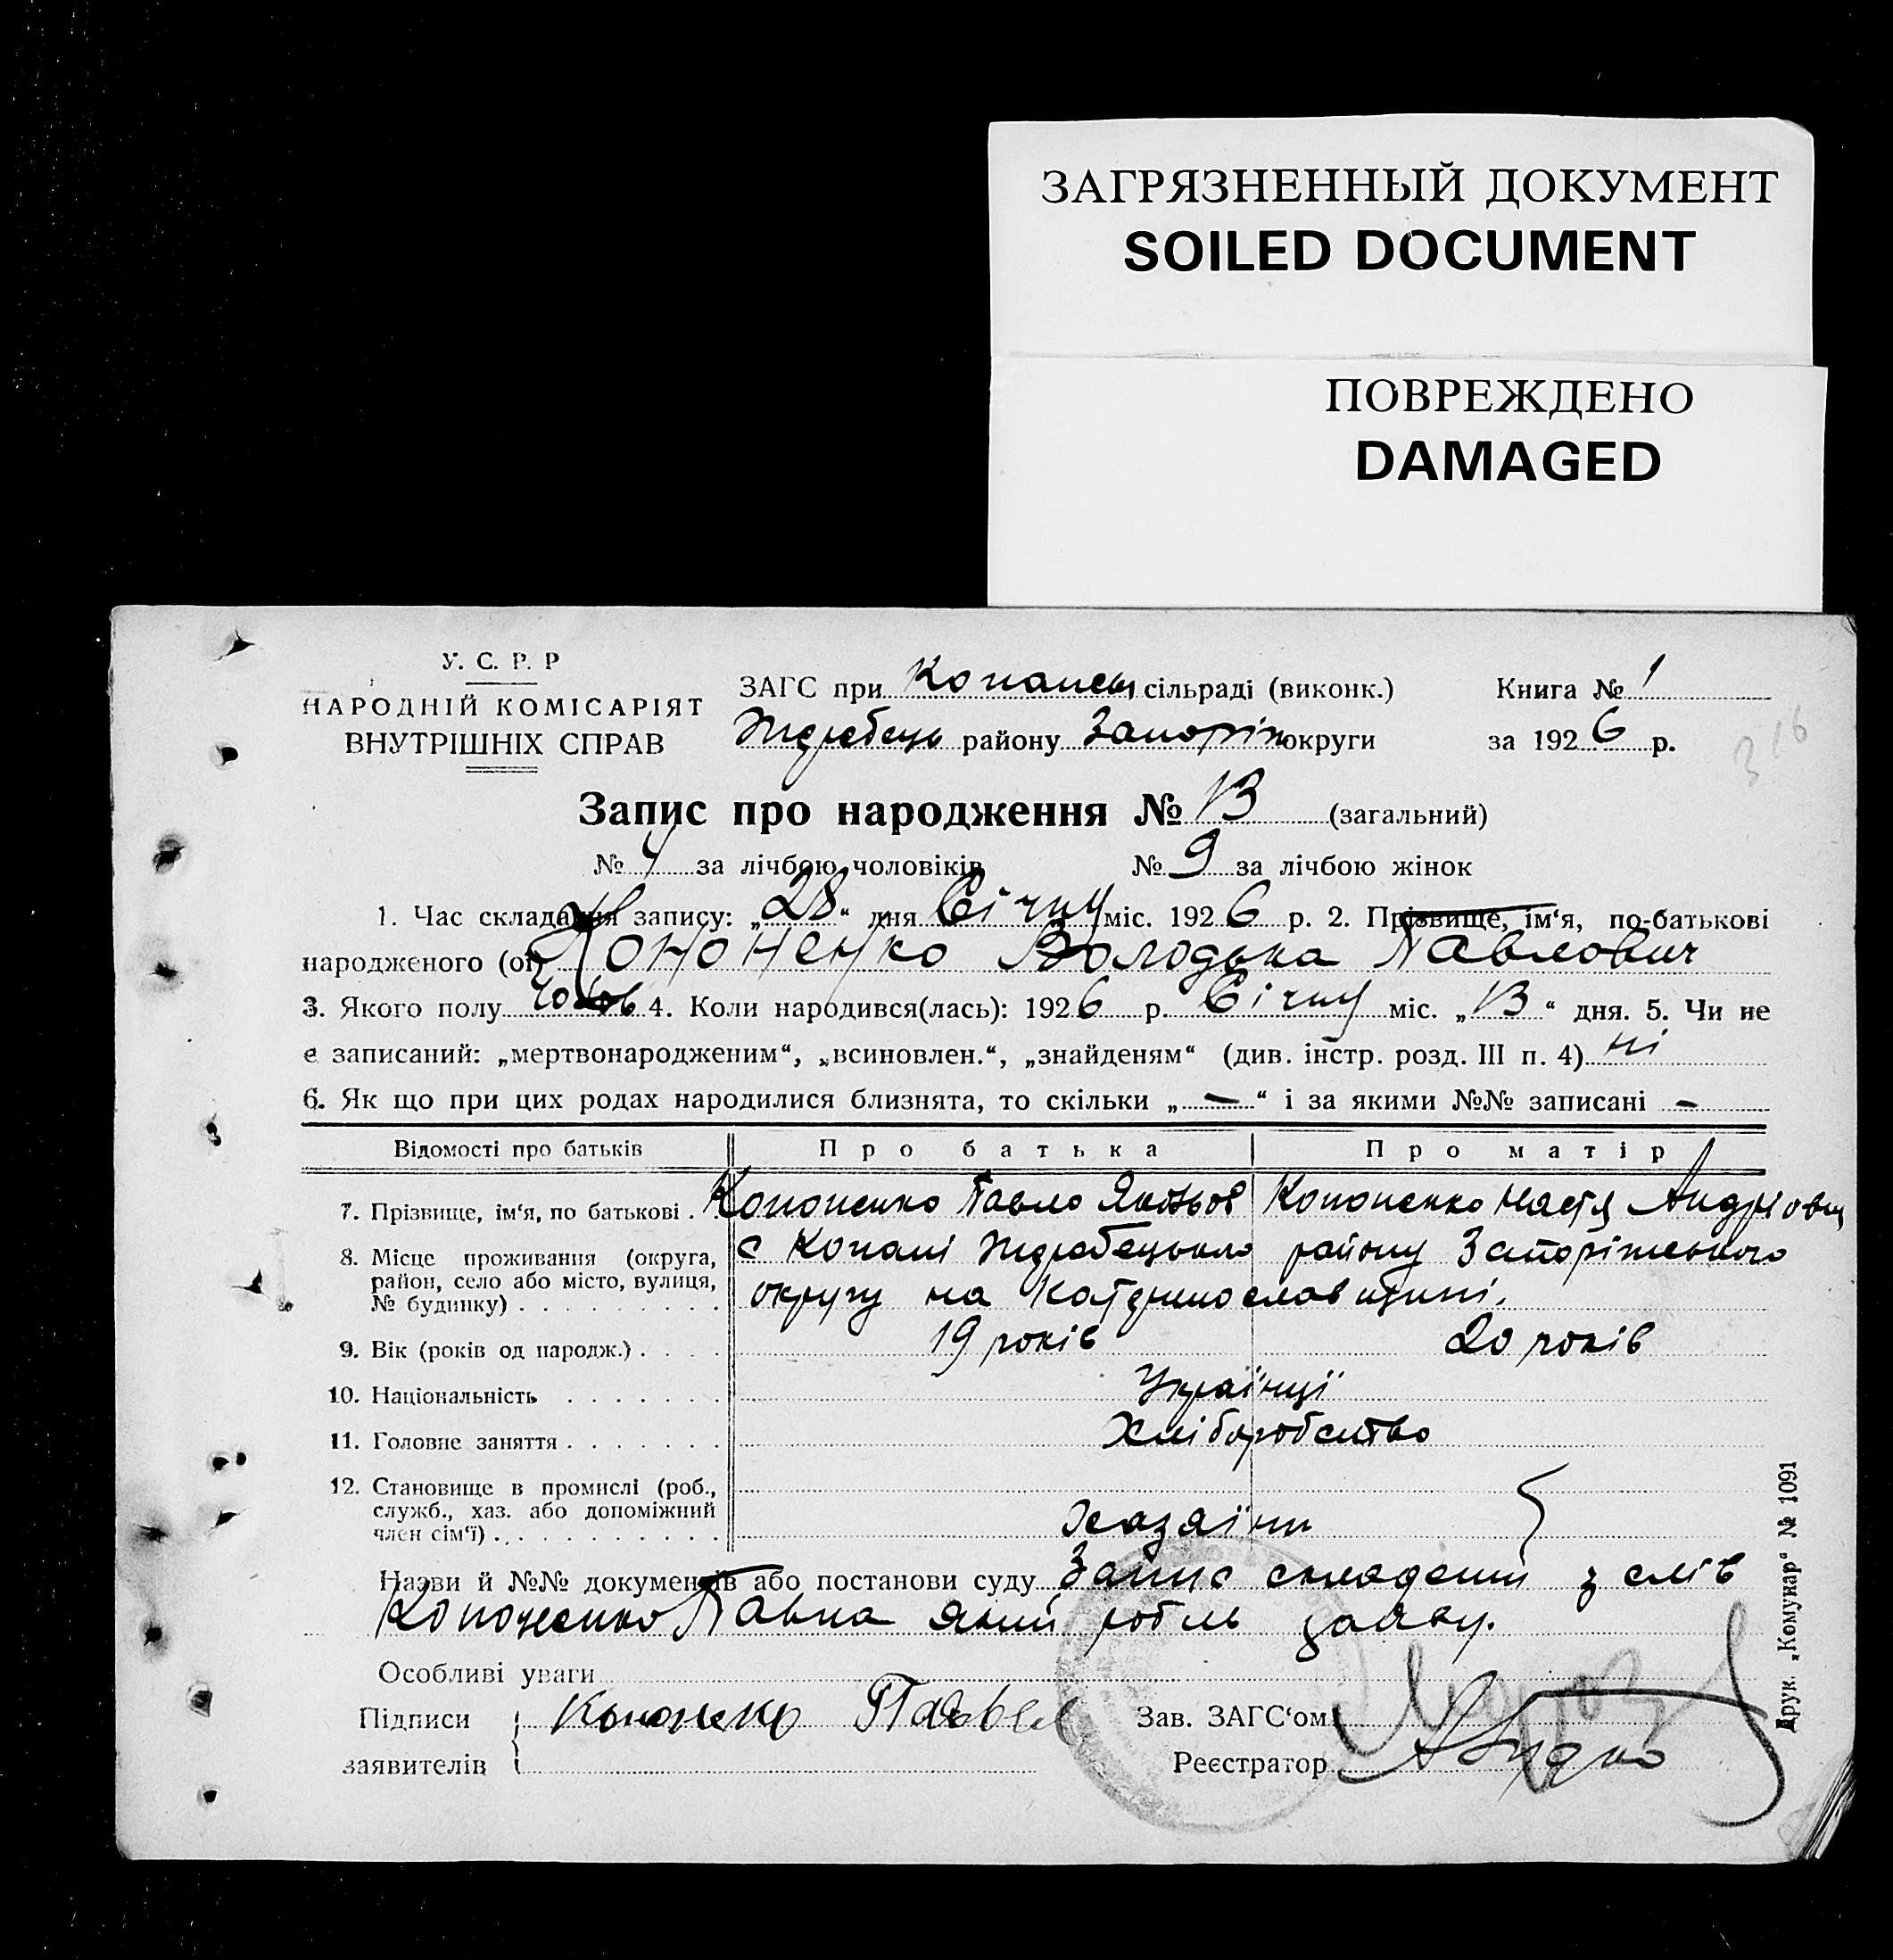 ЗАГРЯЗНЕННЫЙ ДОКУМЕНТ
SOILED DOCUMENT
ПОВРЕЖДЕНО
DAMAGED
У. С. Р. Р
НАРОДНІЙ КОМІСАРІЯТ
ВНУТРІШНІХ СПРАВ
ЗАГС при Копанськ сільраді (виконк.) Книга № 1
Жеребець району Запоріж округи за 1926 р.
316
Запис про народження № 13 (загальний)
№ 4 за лічбою чоловіків № 9 за лічбою жінок
1. Час складання запису: „28“ дня Січну міс. 1926 р. 2. Прізвище, ім‘я, по-батькові
народженого (ої) Кононенко Володька Павлович
3. Якого полу чолов 4. Коли народився(лась): 1926 р. Січну міс. „13“ дня. 5. Чи не
є записаний: „мертвонародженим“, „всиновлен.“, „знайденям“ (див. інстр. розд. III п. 4) ні
6. Як що при цих родах народилися близнята, то скільки „—“ і за якими №№ записані -
Відомості про батьків Про батька Про матір
7. Прізвище, ім‘я, по батькові . Кононенко Павло Яковьов Кононенко Настя Андріовна
8. Місце проживання (округа, с Копані Жеребецького району Запоріжського
район, село або місто, вулиця,
№ будинку) . . . . . . . . . округу на Катеринославщині.
9. Вік (років од народж.) . . . . 19 років 20 років
10. Національність . . . . . . . Українці
11. Головне заняття . . . . . . . Хліборобство
12. Становище в промислі (роб.,
служб., хаз. або допоміжний
член сім‘ї) . . . . . . . . . . Хазяїни
Назви й №№ документів або постанови суду Запис складений з слів
Кононенко Павла який робль заяву.
Особливі уваги
Підписи Кононенко Павел Зав. ЗАГС‘ом
заявителів Реєстратор
Друк. „Комунар“ № 1091